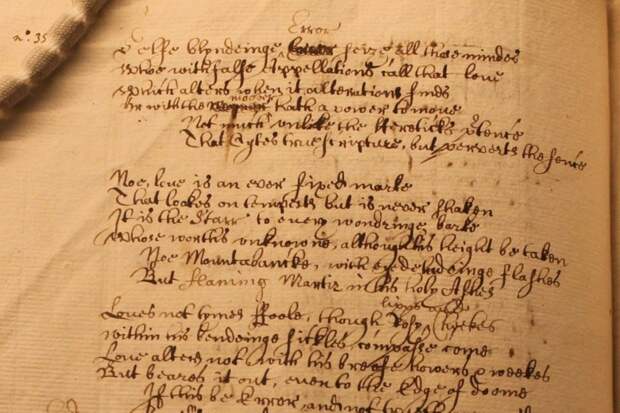 n.º 35
Error
Selfe blyndeinge Error seize all those mindes
Who with false Appellations call that love
Which alters when it alterations finds
moover
Or with the hath a power to move
Not much unlike the Hereticks ptence
That Cytes true scripture, but perverts the sence
Noe, love is an ever fixed marke
That lookes on tempests but is never shaken
It is the Starr to every wandringe barke
Whose worths unknowne, although his height be taken
Noe Mountabancke, with eye deludeinge flashes
But flaming Martir in his holy Ashes
lipps and
Loves not tymes Foole, though Rosy Cheekes
Within his bendeinge sickles compasse come
Love alters not with his breefe howers & weekes
But beares it out, even to the Edge of doome
If this be Error, and not